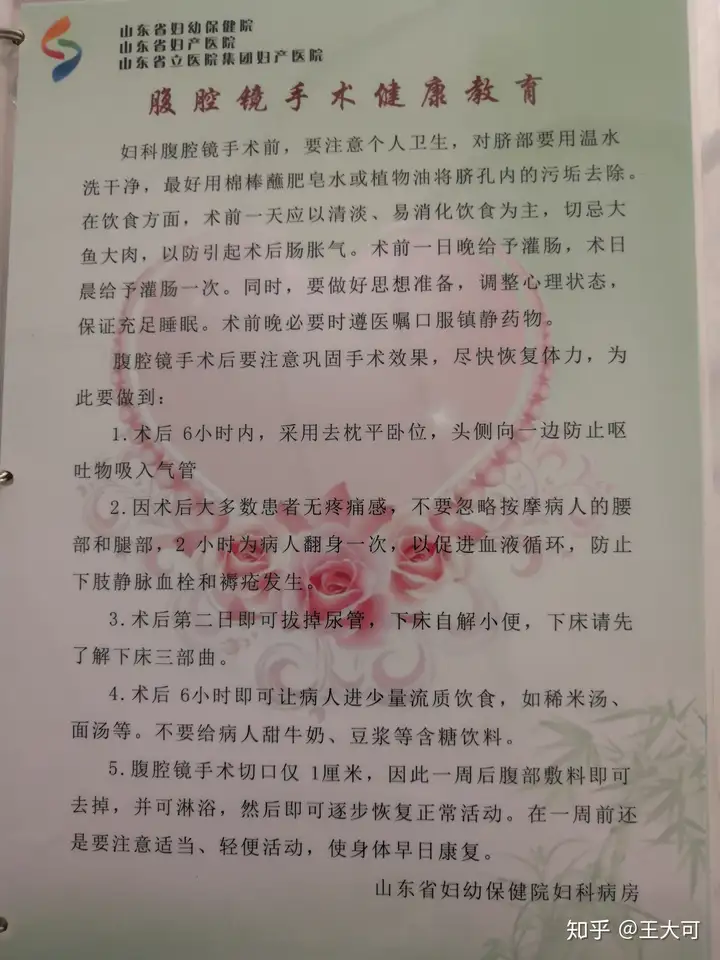 山东省妇幼保健院
山东省妇产医院
山东省立医院集团妇产医院
腹腔镜手术健康教育
妇科腹腔镜手术前，要注意个人卫生，对脐部要用温水
洗干净，最好用棉棒蘸肥皂水或植物油将脐孔内的污垢去除。
在饮食方面，术前一天应以清淡、易消化饮食为主，切忌大
鱼大肉，以防引起术后肠胀气。术前一日晚给予灌肠，术日
晨给予灌肠一次。同时，要做好思想准备，调整心理状态，
保证充足睡眠。术前晚必要时遵医嘱口服镇静药物。
腹腔镜手术后要注意巩固手术效果，尽快恢复体力，为
此要做到：
1.术后 6小时内，采用去枕平卧位，头侧向一边防止呕
吐物吸入气管
2.因术后大多数患者无疼痛感，不要忽略按摩病人的腰
部和腿部，2 小时为病人翻身一次，以促进血液循环，防止
下肢静脉血栓和褥疮发生。
3.术后第二日即可拔掉尿管，下床自解小便，下床请先
了解下床三部曲。
4.术后 6小时即可让病人进少量流质饮食，如稀米汤、
面汤等。不要给病人甜牛奶、豆浆等含糖饮料。
5.腹腔镜手术切口仅 1厘米，因此一周后腹部敷料即可
去掉，并可淋浴，然后即可逐步恢复正常活动。在一周前还
是要注意适当、轻便活动，使身体早日康复。
山东省妇幼保健院妇科病房
知乎 @王大可